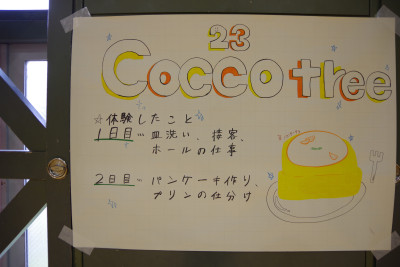 23
Cocco tree
☆体験したこと
1日目…皿洗い、接客、
ホールの仕事
2日目…パンケーキ作り、
プリンの仕分け